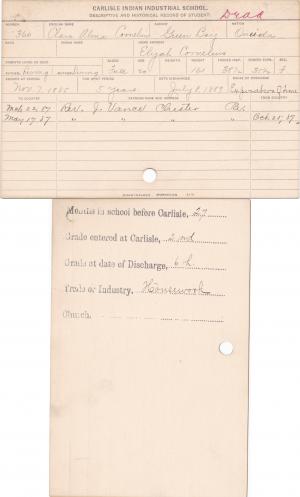 CARLISLE INDIAN INDUSTRIAL SCHOOL.
DESCRIPTIVE AND HISTORICAL RECORD OF STUDENT. Dead
NUMBER ENGLISH NAME AGENCY NATION
360 Clara Alma Cornelius Green Bay Oneida
HOME ADDRESS
Elijah Cornelius
PARENTS LIVING OR DEAD BLOOD AGE HEIGHT WEIGHT SEX
Living Living Full 20 161 F
ARRIVED AT CARLISLE FOR WHAT PERIOD DATE DISCHARGED CAUSE OF DISCHARGE
Nov. 7, 1885 5 years July 8, 1889 Expiration Time
TO COUNTRY PATRONS NAME AND ADDRESS FROM COUNTRY
Mch 22, 87 Rev. J. Vance Chester Pa.
May 17, 87 " " " " Oct 25, 87
Months in school before Carlisle, 27
Grade entered at Carlisle, 2nd
Grade at date of Discharge, 6th
Trade or Industry, Housework
Church,